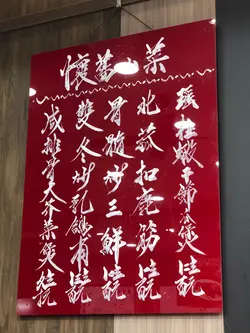 懷舊菜
瑤柱蠔干節瓜煲
北菇扣鹿筋
骨髓炒三鮮
雙冬炒乳鴿甫
咸排骨大芥菜煲